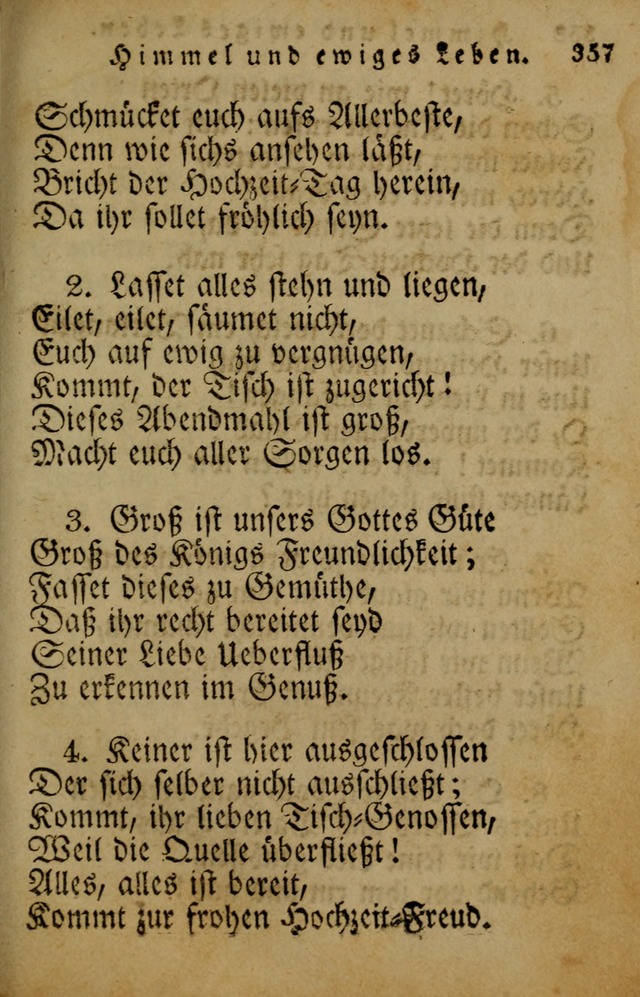 Himmel und ewiges Leben. 357
Schmücket euch aufs Allerbeste,
Denn wie sichs ansehen läßt,
Bricht der Hochzeit-Tag herein,
Da ihr sollet fröhlich seyn.
2. Lasset alles stehn und liegen,
Eilet, eilet, säumet nicht,
Euch auf ewig zu vergnügen,
Kommt, der Tisch ist zugericht!
Dieses Abendmahl ist groß,
Macht euch aller Sorgen los.
3. Groß ist unsers Gottes Güte
Groß des Königs Freundlichkeit;
Fasset dieses zu Gemüthe,
Daß ihr recht bereitet seyd
Seiner Liebe Ueberfluß
Zu erkennen im Genuß.
4. Keiner ist hier ausgeschlossen
Der sich selber nicht ausschließt;
Kommt, ihr lieben Tisch-Genossen,
Weil die Quelle überfließt!
Alles, alles ist bereit,
Kommt zur frohen Hochzeit-Freud.